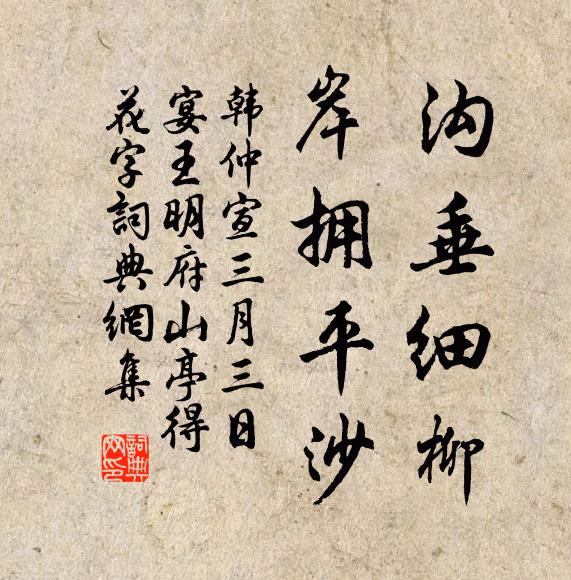 沟垂细柳
岸拥平沙
韩仲宣三月三日
宴王明府山亭得
花字詞典網集
詞典网印